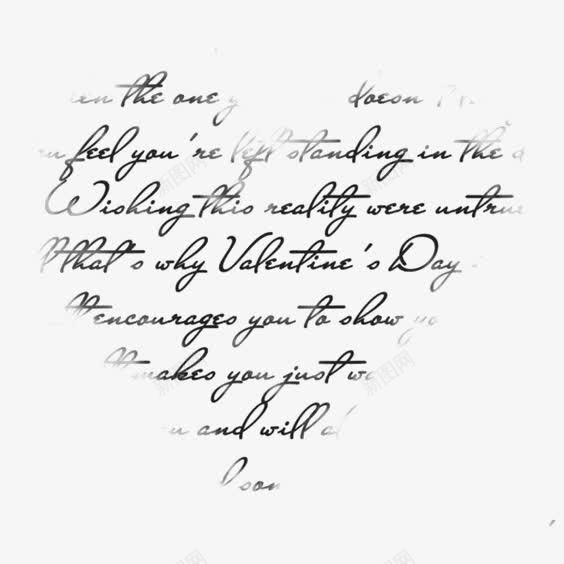 the one doesn
feel you're left standing in the
Wishing this reality were untrue
that's why Valentine's Day
It encourages you to show
It makes you just
and will